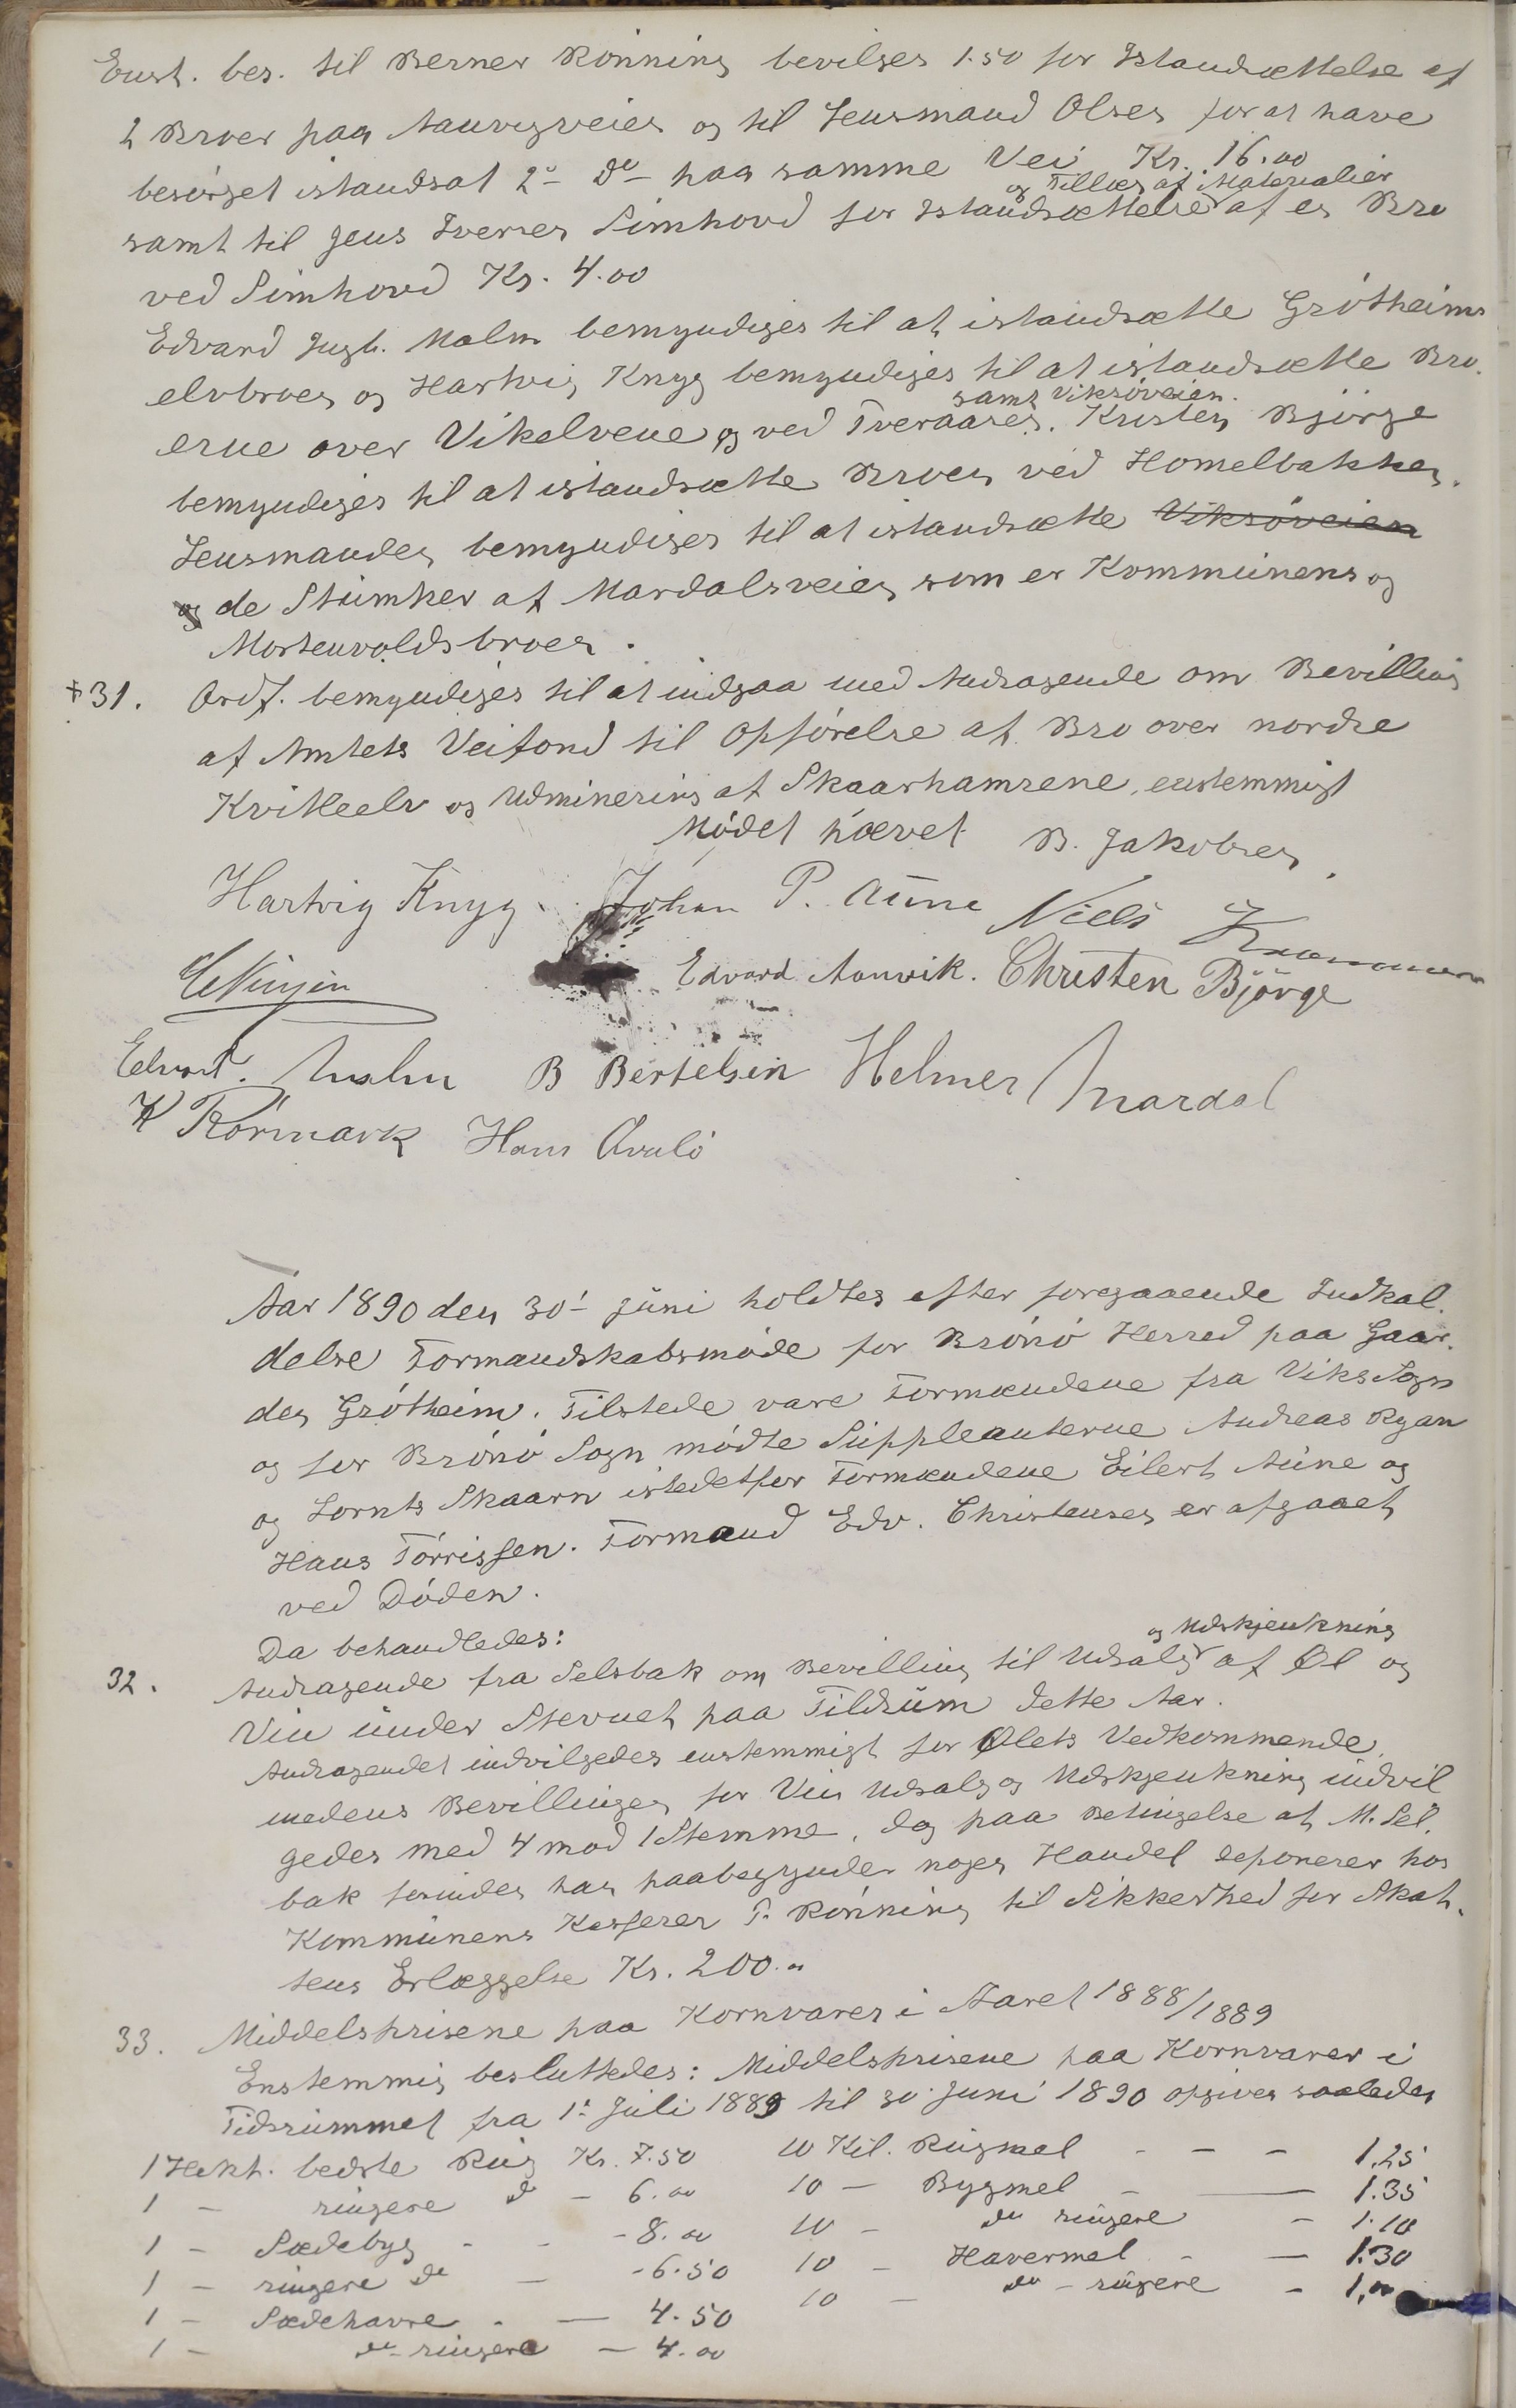 Enst. bes. til Berner Rönning bevilges 1.50 for Istandsættelse af
2 Broer paa Aunvegveien og til Lensmand Olsen for at have
besörget istandsat 2 - do - paa samme Vei Kr. 16.00
og Tillæg af Materialier
samt til Jens Iversen Simhovd for Istandsættelse af en Bro
ved Simhovd Kr. 4.00
Edvard Ingb. Malm bemyndiges til at istandsætte Grötheims
elvbroen og Hartvig Knyg bemyndiges til at istandsætte Bro
samt Viksöveien.
erne over Vikelvene og ved Tveraaren. Kristen Björge
bemyndiges til at istandsætte Broen ved Homelbakken.
Lensmanden bemyndiges til at istandsætte Viksöveien
og de Stumker af Mardalsveien som er Kommunens og
Mortenvoldsbroen.
+31. Ordf. bemyndiges til at indgaa med Andragende om Bevilling
af Amtets Veifond til Opförelse af Bro over nordre
Kvitleelv og Udminering af Skaarhamrene, enstemmigt
Mödet hævet B. Jakobsen
Hartvig Knyg Johan P. Aune Niels
Edvard Aunvik. Christen Björge
Edvard. Malm B Bertelsen Helmer Mardal
K Rörmark Hans
Aar 1890 den 30' Juni holdtes efter foregaaende Indkal
delse Formandskabsmöde for Brönö Herred paa Gaar
den Grötheim. Tilstede vare Formændene fra Viks Sogn
og for Brönö Sogn mödte Suppleanterne Andreas Ryan
og Lornts Skaarn istedetfor Formændene Eilert Aune og
Hans Törrissen. Formand Edv. Christensen er afgaaet
ved Döden.
Da behandledes:
og Udskjenkning
32. Andragende fra Selsbak om Bevilling til Udsalg af Øl og
Vin under Stevnet paa Tildrum dette Aar.
Andragendet indvilgedes enstemmigt for Ølets Vedkommende,
medens Bevillingen for Vin Udsalg og Udskjenkning indvil
gedes med 4 mod 1 Stemme, dog paa Betingelse at M. Sel.
bak forinden han paabegynder nogen Handel deponerer hos
Kommunens Kasserer T. Rönning til Sikkerhed for Skat
tens Erlæggelse Kr. 200.
33. Middelsprisene paa Kornvarer i Aaret 1888/1889
Enstemmig besluttedes: Middelsprisene paa Kornvarer i
Tidsrummet fra 1. Juli 1889 til 30 Juni 1890 opgives saaledes
1 Hekt. bedste Rug Kr. 7.50 10 Kil. Rugmel - - - 1.25
1 - ringere do - 6.00 10 - Bygmel - — 1.35
1 - Sædebyg - - - 8.00 10 - do ringere - 1.10
1 - ringere do - - 6.50 10 - Havermel - — 1.30
1 - Sædehavre - — 4.50 10 - do - ringere - 1,00
1 - do - ringere — 4.00